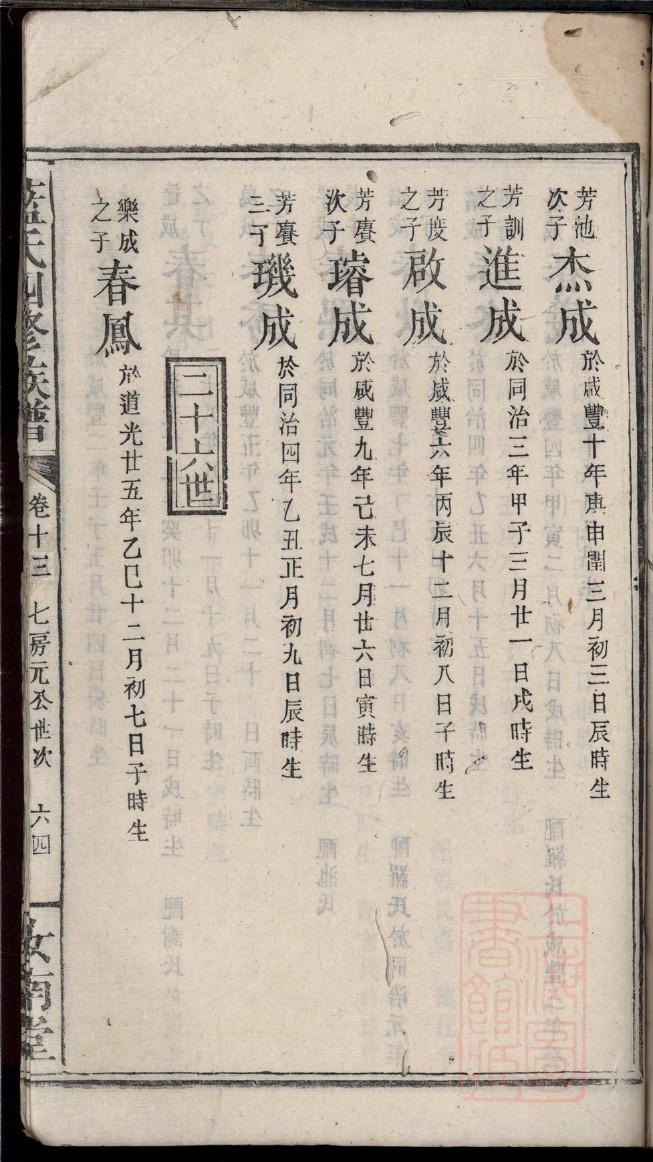 芳池次子 杰成 於咸豐十年庚申閏三月初三日辰時生
芳訓之子 進成 於同治三年甲子三月廿一日戌時生
芳度之子 啟成 於咸豐六年丙辰十二月初八日子時生
芳賡次子 璿成 於咸豐九年己未七月廿六日寅時生
芳賡三子 璣成 於同治四年乙丑正月初九日辰時生
二十六世
樂成之子 春鳳 於道光廿五年乙巳十二月初七日子時生
藍氏四修族譜 卷十三 七房元公世次 六四 汝南堂